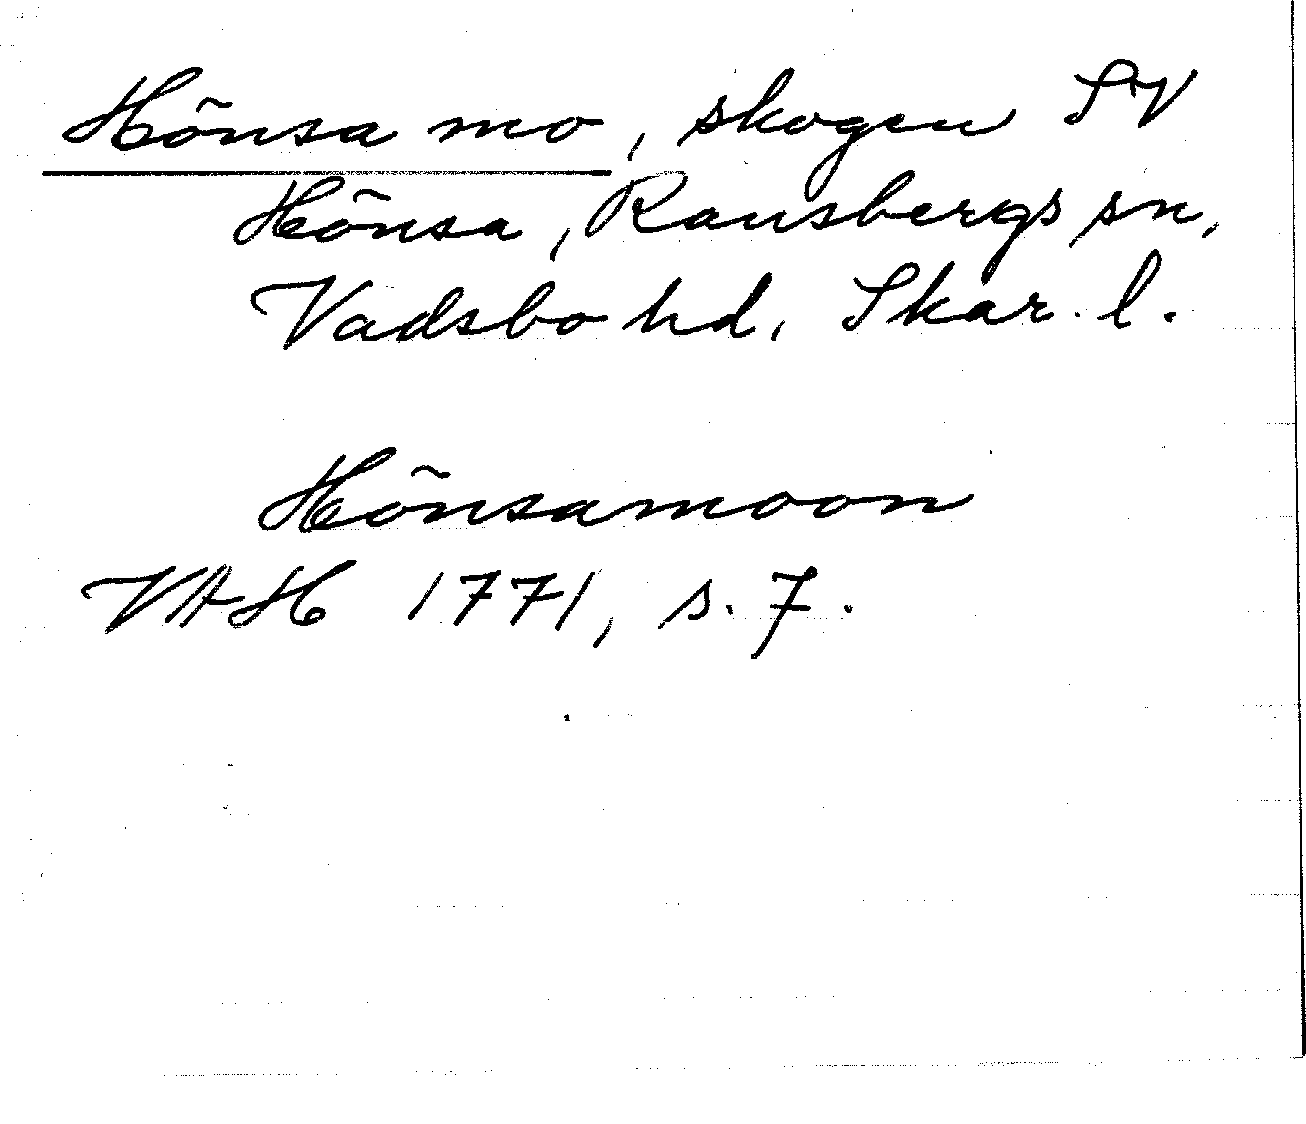 Hönsa mo, skogen SV
Hönsa, Ransbergs sn,
Vadsbo hd, Skar. l.
Hönsamoon
VAH 1771, s. 7.